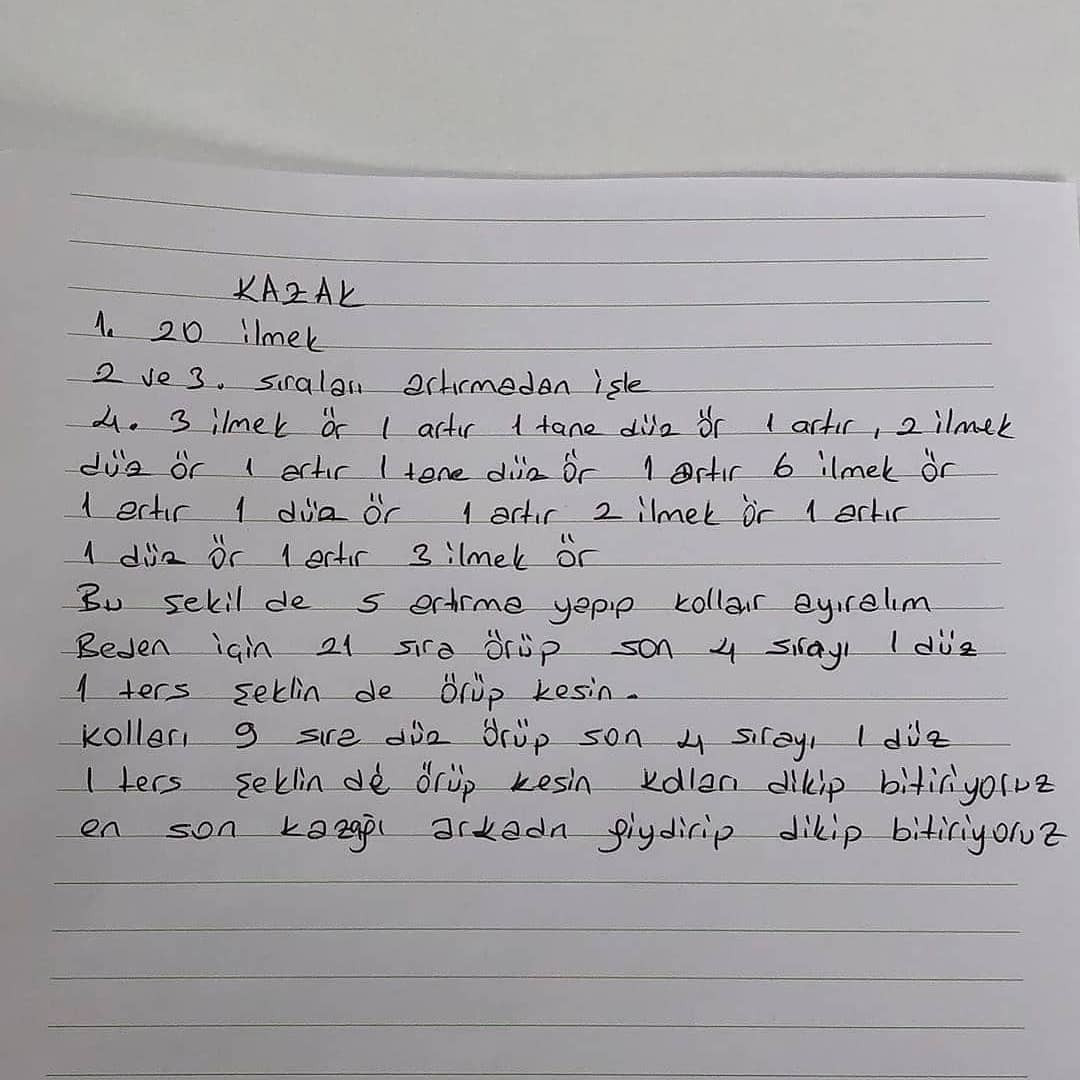 KAZAK
1. 20 ilmek
2 ve 3. sıraları artırmadan işle
4. 3 ilmek ör 1 artır 1 tane düz ör 1 artır, 2 ilmek
düz ör 1 artır 1 tane düz ör 1 artır 6 ilmek ör
1 artır 1 düz ör 1 artır 2 ilmek ör 1 artır
1 düz ör 1 artır 3 ilmek ör
Bu şekil de 5 artırma yapıp kolları ayıralım
Beden için 21 sıra örüp son 4 sırayı 1 düz
1 ters şeklin de örüp kesin.
kolları 9 sıra düz örüp son 4 sırayı 1 düz
1 ters şeklin de örüp kesin kolları dikip bitiriyoruz
en son kazağı arkadn giydirip dikip bitiriyoruz